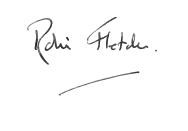 Robin Fletcher.